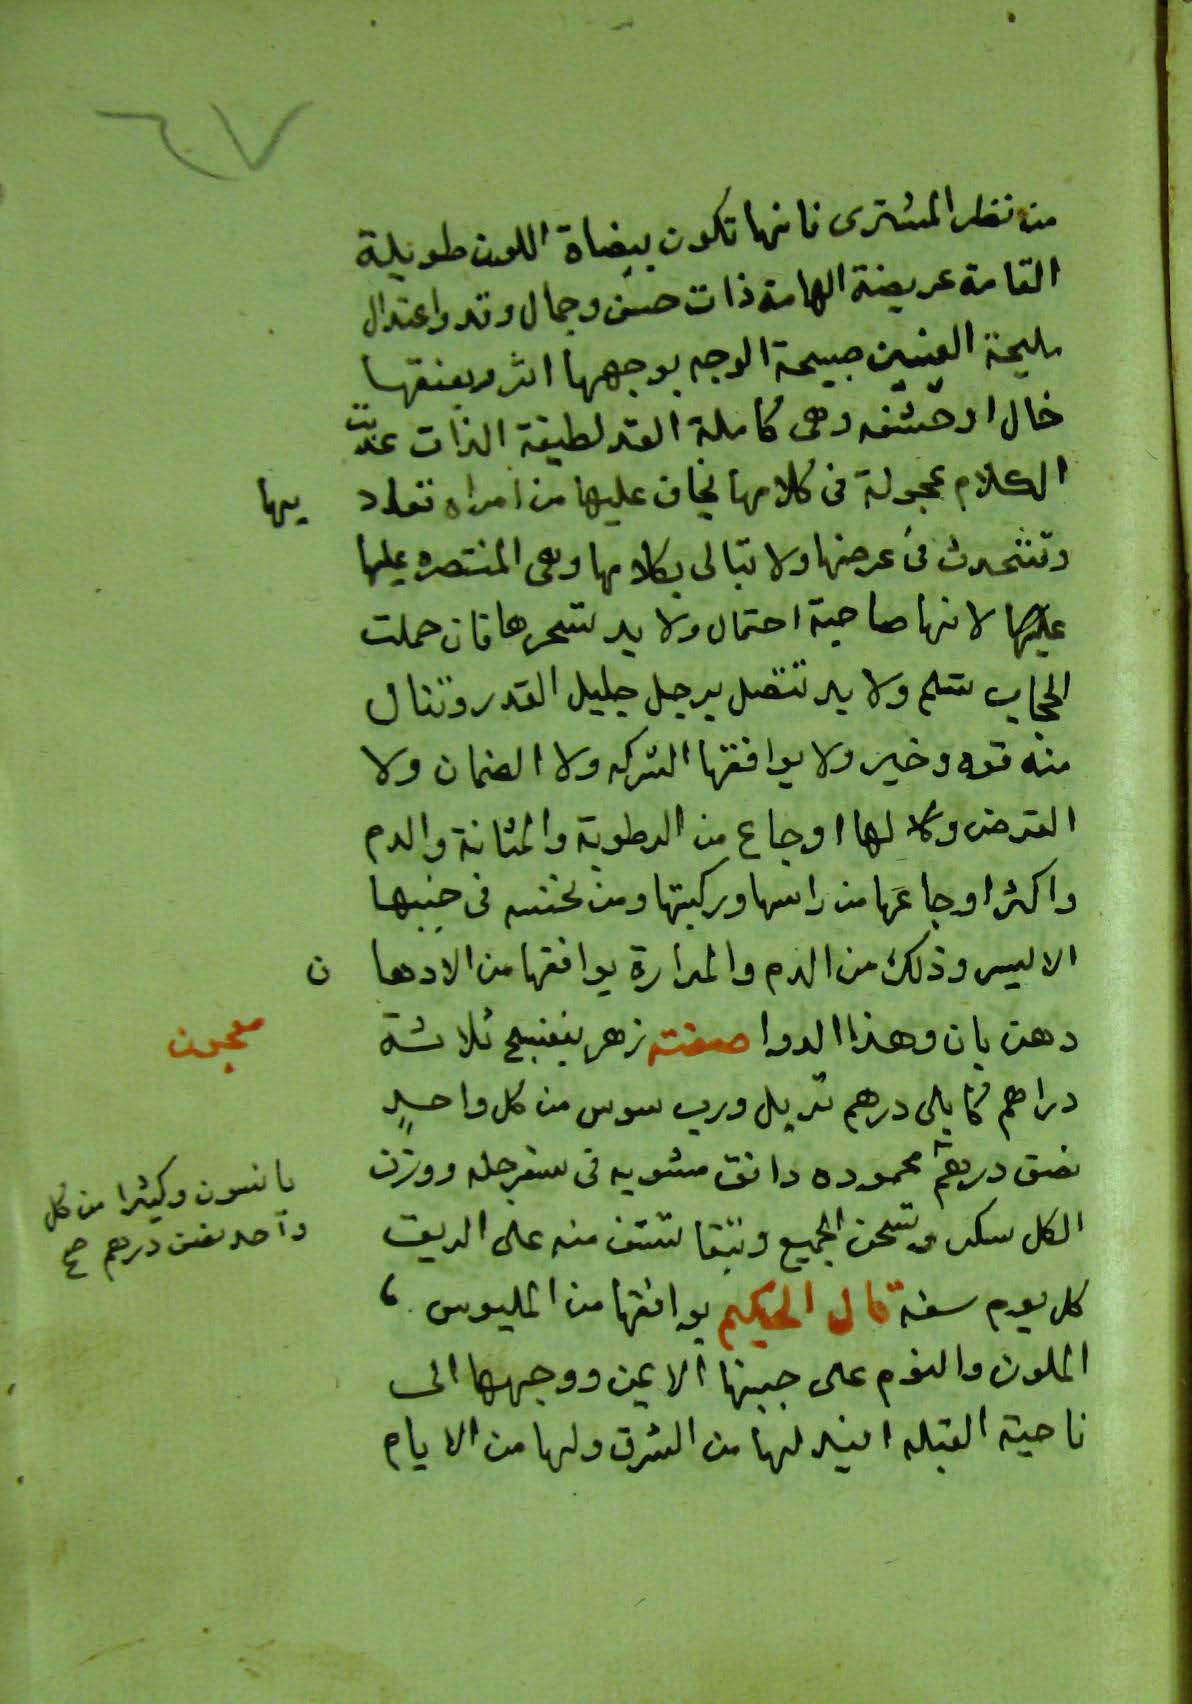 ٦٧
من نظر المشترى فانها تكون بيضاة اللون طويلة
القامة عريضة الهامة ذات حسن وجمال وقد واعتدال
مليحة العينين صبيحة الوجه بوجهها اثر وبعنقها
خال او حشفه وهى كاملة القد لطيفة الذات عذبت
الكلام عجولة فى كلامها يخاف عليها من امراه تعاد يها
وتتحدث فى عرضها ولا تبالى بكلامها وهى المنتصره عليها
عليها لانها صاحبة احتمال ولا بد تسحرها فان حملت
الحجاب تسلم ولا بد تتصل برجل جليل القدر وتنال
منه قوه وخير ولا يوافقها الشركه ولا الضمان ولا
القرض وكلا لها اوجاع من الرطوبة والمثانة والدم
واكثر اوجاعها من راسها وركبتها ومن نخسه فى جنبها
الايسر وذلك من الدم والمرارة يوافقها من الادها ن
دهن بان وهذا الدوا صفته زهر بنفسج ثلاثة
معجون
دراهم كابلى درهم تربل ورب سوس من كل واحدٍ
نصف درهم محموده دانق مشويه فى سفرجله ووزن
يانسون وكيثرا من كل
واحد نصف درهم صح
الكل سكر وتسحق الجميع وتبقا تستف منه على الريق
كل يوم سفة قال الحكيم يوافقها من المليوس
الملون والنوم على جبينها الايمن ووجهها الى
ناحية القبله افيد لها من الشرق ولها من الايام